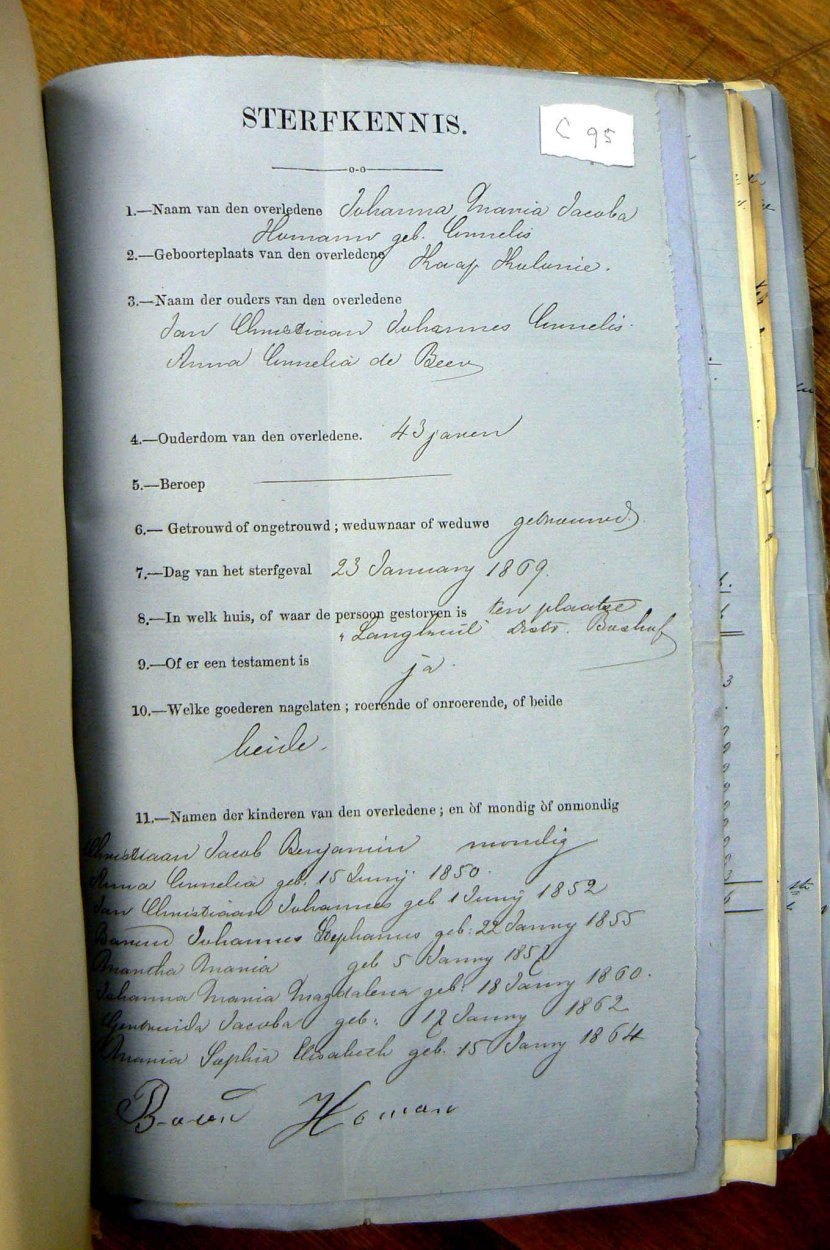 STERFKENNIS.
C 95
1.—Naam van den overledene Johanna Maria Jacoba
Homann geb. Cornelis
2.—Geboorteplaats van den overledene Kaap Kolonie.
3.—Naam der ouders van den overledene
Jan Christiaan Johannes Cornelis
Anna Cornelia de Beer
4.—Ouderdom van den overledene. 43 jaren
5.—Beroep
6.—Getrouwd of ongetrouwd; weduwnaar of weduwe getrouwd
7.—Dag van het sterfgeval 23 January 1869.
8.—In welk huis, of waar de persoon gestorven is ten plaatze
"Langkuil" Distr. Boshof
9.—Of er een testament is ja.
10.—Welke goederen nagelaten; roerende of onroerende, of beide
beide.
11.—Namen der kinderen van den overledene; en òf mondig òf onmondig
Christiaan Jacob Benjamin mondig
Anna Cornelia geb. 15 Junij 1850.
Jan Christiaan Johannes geb 1 Junij 1852
Barend Johannes Stephanus geb: 22 Janny 1855
Martha Maria geb 5 Janny
Johanna Maria Magdalena geb: 18 Janny 1860.
Gertruida Jacoba geb: 17 Janny 1862
Maria Sophia Elisabeth geb. 15 Janny 1864
Barend Homan